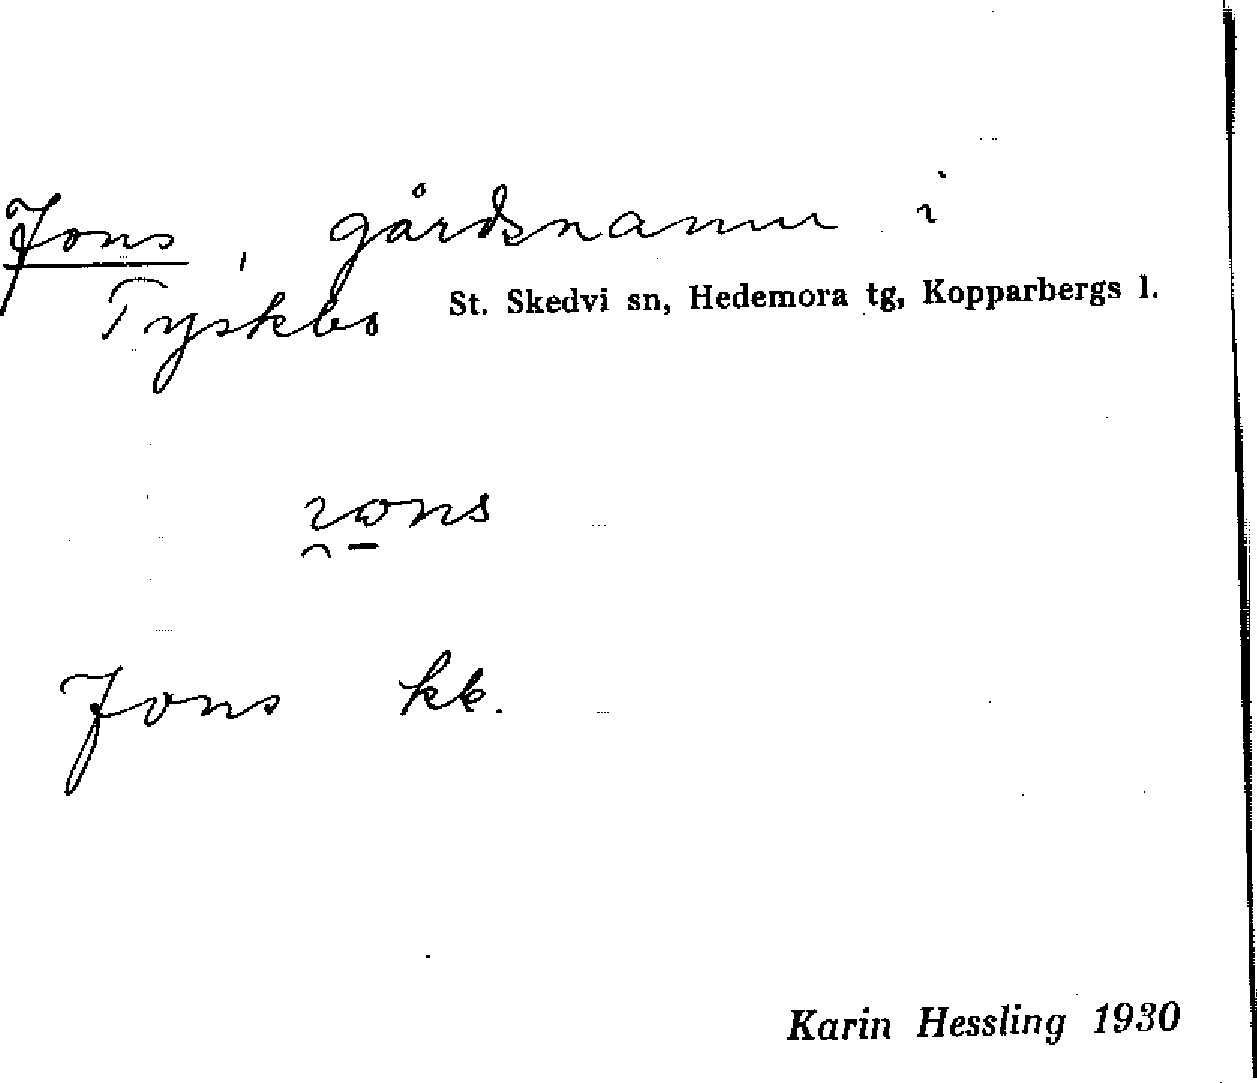 Jons, gårdsnamn i
Tyskbo St. Skedvi sn, Hedemora tg, Kopparbergs l.
Jons kk.
Karin Hessling 1930